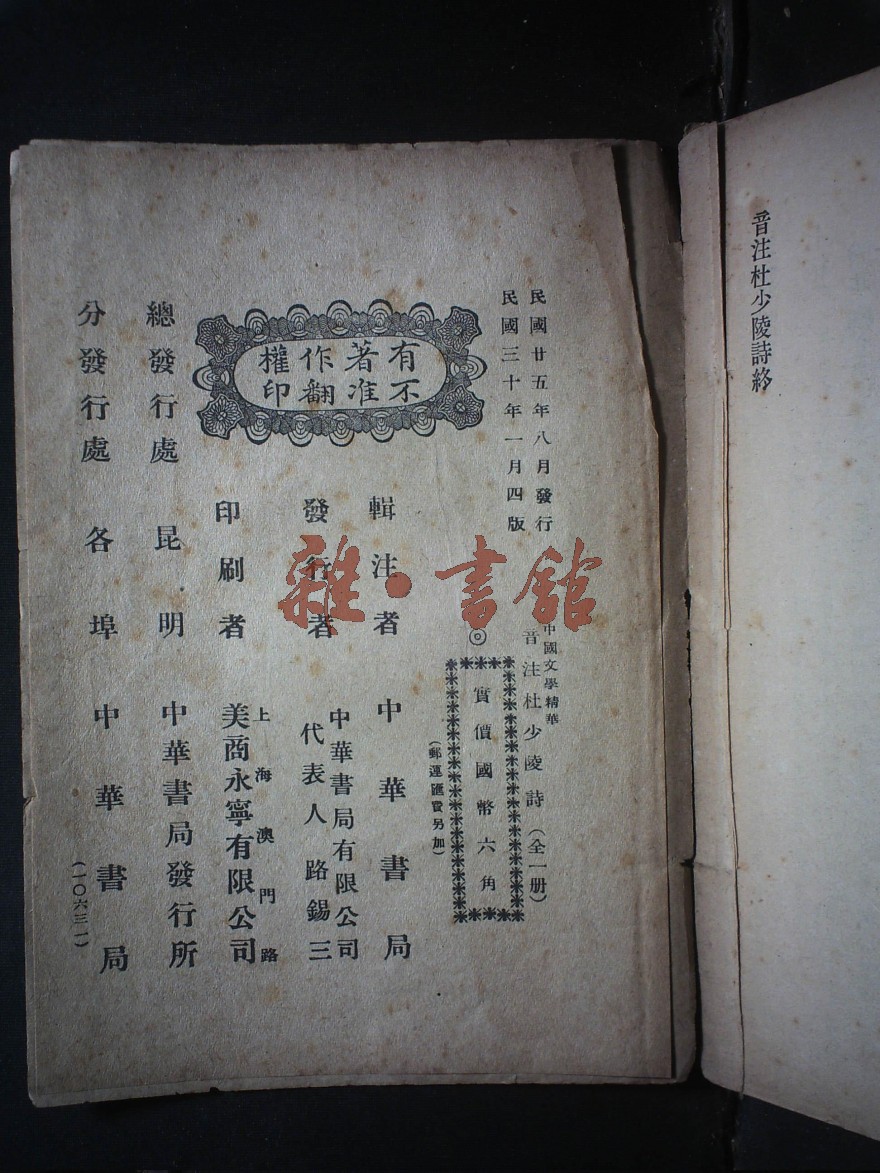 音注杜少陵詩終
民國廿五年八月發行
民國三十年一月四版
中國文學精華
音注杜少陵詩（全一册）
◎
實價國幣六角
（郵運匯費另加）
有著作權
不准翻印
輯注者 中華書局
發行者 中華書局有限公司
代表人路錫三
印刷者 上海澳門路
美商永寧有限公司
總發行處 昆明 中華書局發行所
分發行處 各埠 中華書局
（一〇六三一）
雜·書舘